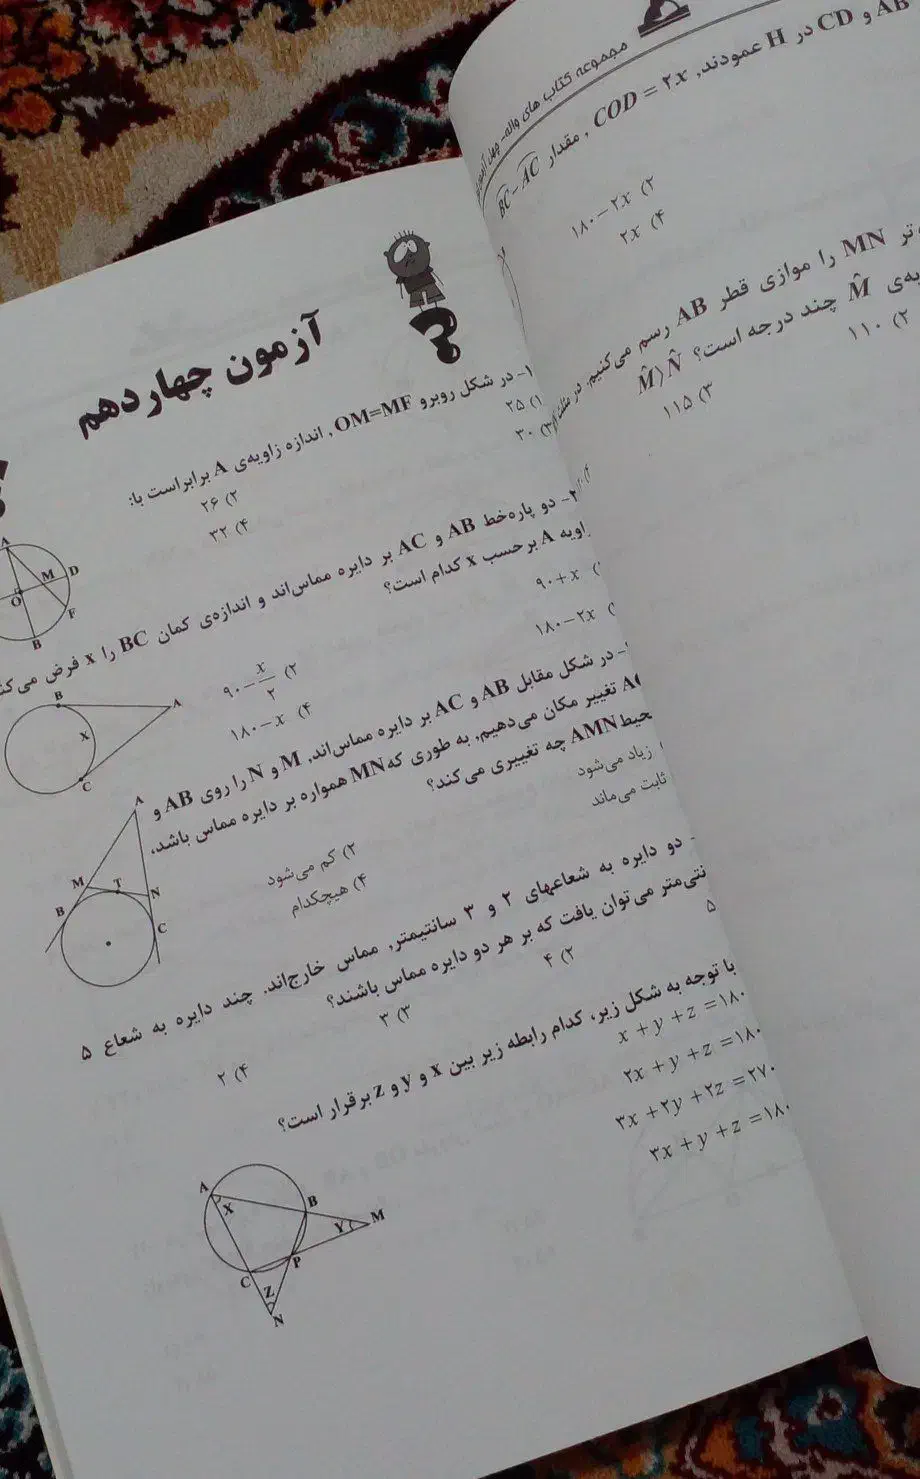 مجموعه کتاب های واله- چهل آزمون
AB و CD در H عمودند, COD = ۲x , مقدار BC - AC
۲) ۱۸۰ − ۲x
۴) ۲x
MN را موازی قطر AB رسم می‌کنیم. در
M̂ چند درجه است؟ M̂⟩N̂
۲) ۱۱۰
۳) ۱۱۵
آزمون چهاردهم
۱- در شکل روبرو OM=MF , اندازه زاویه‌ی A برابراست با:
۱) ۲۵
۲) ۲۶
۳) ۳۰
۴) ۳۲
A
M
D
O
F
B
۲- دو پاره‌خط AB و AC بر دایره مماس‌اند و اندازه‌ی کمان BC را x فرض می‌کنیم
زاویه A برحسب x کدام است؟
۹۰ + x
۲) ۹۰ − x/۲
۱۸۰ − ۲x
۴) ۱۸۰ − x
B
A
x
C
- در شکل مقابل AB و AC بر دایره مماس‌اند, M و N را روی AB و
AC تغییر مکان می‌دهیم, به طوری که MN همواره بر دایره مماس باشد,
محیط AMN چه تغییری می‌کند؟
زیاد می‌شود
۲) کم می‌شود
ثابت می‌ماند
۴) هیچکدام
A
M
T
N
B
C
- دو دایره به شعاعهای ۲ و ۳ سانتیمتر, مماس خارج‌اند. چند دایره به شعاع ۵
نتی‌متر می‌توان یافت که بر هر دو دایره مماس باشند؟
۵
۲) ۴
۳) ۳
۴) ۲
با توجه به شکل زیر، کدام رابطه زیر بین x و y و z برقرار است؟
x + y + z = ۱۸۰
۲x + y + z = ۱۸۰
۳x + ۲y + ۲z = ۲۷۰
۳x + y + z = ۱۸۰
A
X
B
Y
M
C
P
Z
N